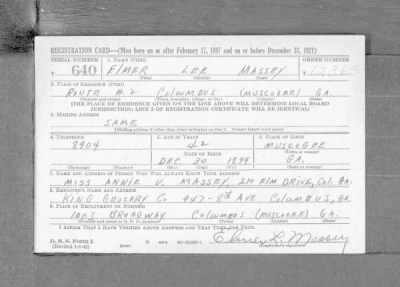 REGISTRATION CARD—(Men born on or after February 17, 1897 and on or before December 31, 1921)
SERIAL NUMBER 1. NAME (Print) ORDER NUMBER
640 ELMER LEE MASSEY 12365
(First) (Middle) (Last)
2. PLACE OF RESIDENCE (Print)
ROUTE #2 COLUMBUS (MUSCOGEE) GA.
(THE PLACE OF RESIDENCE GIVEN ON THE LINE ABOVE WILL DETERMINE LOCAL BOARD
JURISDICTION; LINE 2 OF REGISTRATION CERTIFICATE WILL BE IDENTICAL)
3. MAILING ADDRESS
SAME
(Mailing address if other than place indicated on line 2. If same insert word same)
4. TELEPHONE 5. AGE IN YEARS 6. PLACE OF BIRTH
8904 42 MUSCOGEE
DATE OF BIRTH (Town or county)
DEC. 30 1899 GA.
(Exchange) (Number) (Mo.) (Day) (Yr.) (State or country)
7. NAME AND ADDRESS OF PERSON WHO WILL ALWAYS KNOW YOUR ADDRESS
MISS ANNIE V. MASSEY, 210 ELM DRIVE, COL. GA.
8. EMPLOYER'S NAME AND ADDRESS
KING GROCERY CO 947-8TH AVE COLUMBUS, GA.
9. PLACE OF EMPLOYMENT OR BUSINESS
1003 BROADWAY COLUMBUS (MUSCOGEE) GA.
I AFFIRM THAT I HAVE VERIFIED ABOVE ANSWERS AND THAT THEY ARE TRUE.
D. S. S. FORM 1
(Revised 1-1-42) (over) Elmer L. Massey
(Registrant's signature)